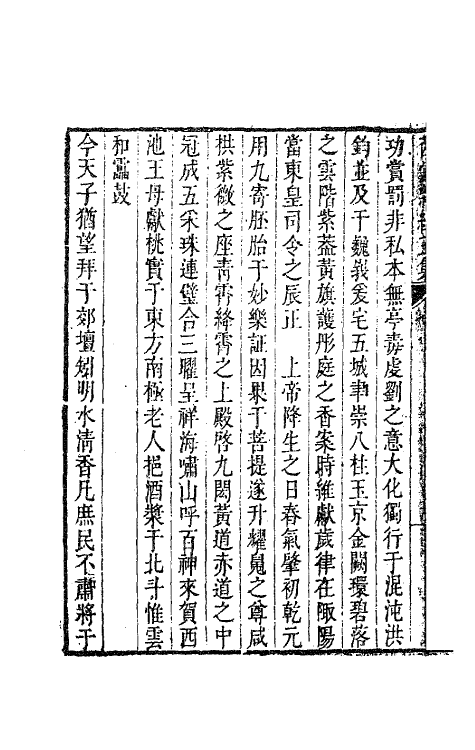 功賞罰非私本無亭毒虔劉之意大化獨行于混沌洪
鈞並及于巍峩爰宅五城聿崇八柱玉京金闕環碧落
之雲階紫蓋黃旗護彤庭之香案時維獻歲律在陬陽
當東皇司令之辰正　上帝降生之日春氣肇初乾元
用九寄胚胎于妙樂証因果于菩提遂升耀魄之尊咸
拱紫微之座靑霄絳霄之上殿啓九閎黃道赤道之中
冠成五采珠連璧合三曜呈祥海嘯山呼百神來賀西
池王母獻桃實于東方南極老人挹酒漿于北斗惟雲
和靁鼓
今天子猶望拜于郊壇矧明水淸香凡庶民不肅將于